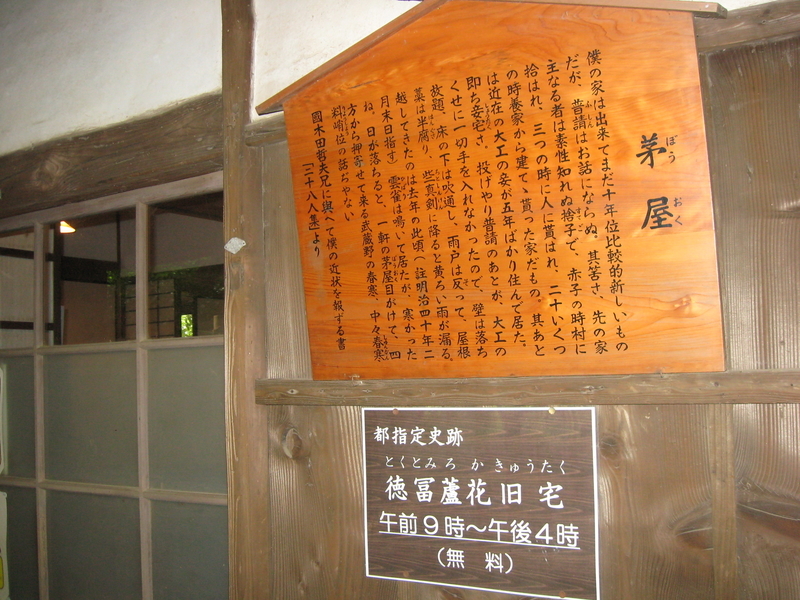 茅屋
ぼうおく
僕の家は出来てまだ十年位比較的新しいもの
だが、普請はお話にならぬ。其筈さ、先の家
主なる者は素性知れぬ捨子で、赤子の時村に
拾はれ、三つの時に人に貰はれ、二十いくつ
の時養家から建てゝ貰つた家だもの。其あと
は近在の大工の妾が五年ばかり住んで居た。
即ち妾宅さ、投げやり普請のあとが、大工の
くせに一切手を入れなかつたので、壁は落ち
放題、床の下は吹通し、雨戸は反つて、屋根
藁は半腐り、些真剣に降ると黄ろい雨が漏る。
越してきたのは去年の此頃(註明治四十年二
月末日指す)雲雀は鳴いて居たが、寒かつた
ね。日が落ちると、一軒の茅屋目がけて、四
方から押寄せて来る武蔵野の春寒、中々春寒
料峭位の話ぢやない
國木田哲夫兄に與へて僕の近状を報ずる書
「二十八人集」より
都指定史跡
とくとみろかきゅうたく
徳冨蘆花旧宅
午前9時～午後4時
(無料)